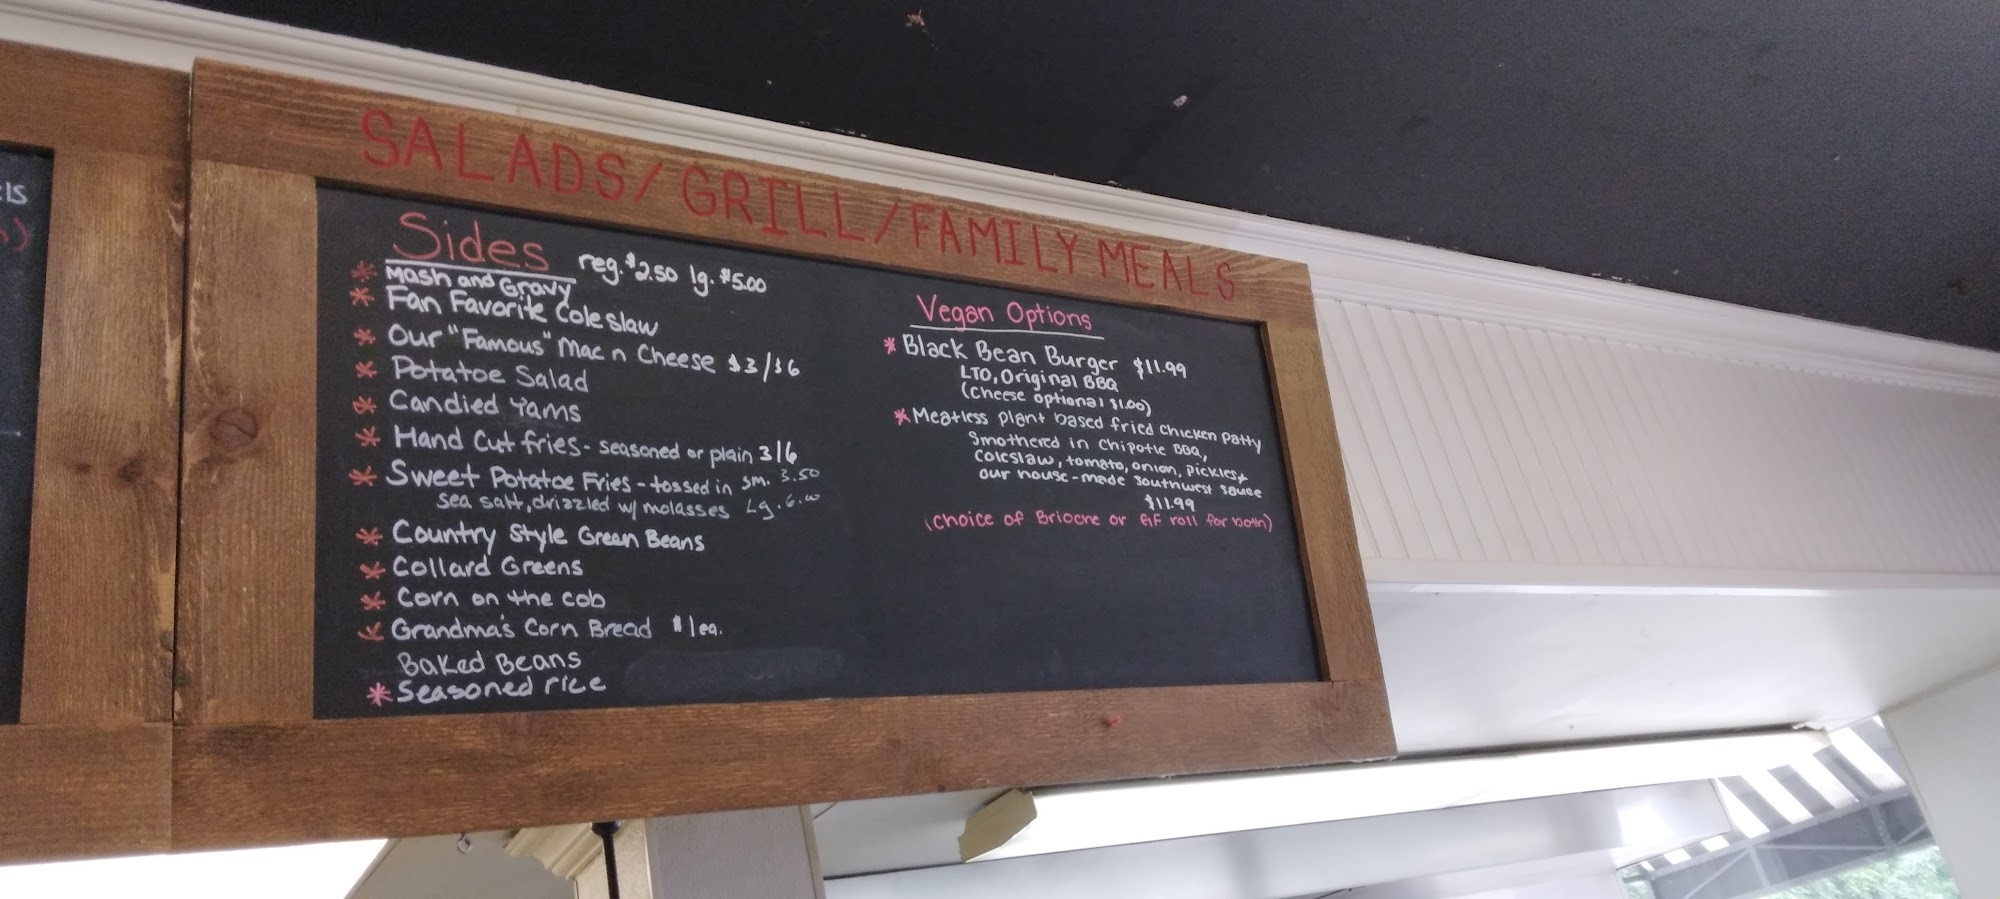 SALADS/GRILL/FAMILY MEALS
Sides reg. $2.50 lg. $5.00
* Mash and Gravy
* Fan Favorite Coleslaw
* Our "Famous" Mac n Cheese $3/$6
* Potatoe Salad
* Candied Yams
* Hand Cut fries - seasoned or plain 3/6
* Sweet Potatoe Fries - tossed in sm. 3.50
sea salt, drizzled w/ molasses Lg. 6.00
* Country Style Green Beans
* Collard Greens
* Corn on the cob
* Grandma's Corn Bread $1 ea.
Baked Beans
* Seasoned rice
Vegan Options
* Black Bean Burger $11.99
LTO, Original BBQ
(Cheese optional $1.00)
* Meatless plant based fried chicken patty
Smothered in Chipotle BBQ,
Coleslaw, tomato, onion, pickles +
our house-made southwest sauce
$11.99
(Choice of Brioche or GF roll for both)